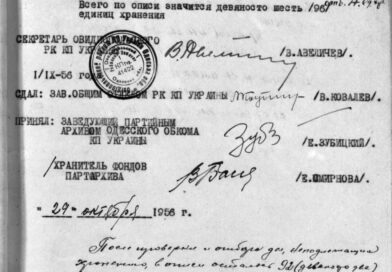 Всего по описи значится девяносто шесть /96/
единиц хранения
СЕКРЕТАРЬ ОВИДИ
РК КП УКР /В.АВЕЛИЧЕВ/
1/IX-56 г
СДАЛ: ЗАВ.ОБЩИМ РК КП УКРАИНЫ /В.КОВАЛЕВ/
ПРИНЯЛ: ЗАВЕДУЮЩИЙ ПАРТИЙНЫМ
АРХИВОМ ОДЕССКОГО ОБКОМА
КП УКРАИНЫ /Е.ЗУБИЦКИЙ/
/ХРАНИТЕЛЬ ФОНДОВ
ПАРТАРХИВА /Е.СМИРНОВА/
"29" октября 1956 г.
После проверки и отбора дел, неподлежащих
хранению, в описи осталось 92 (девяносто два)